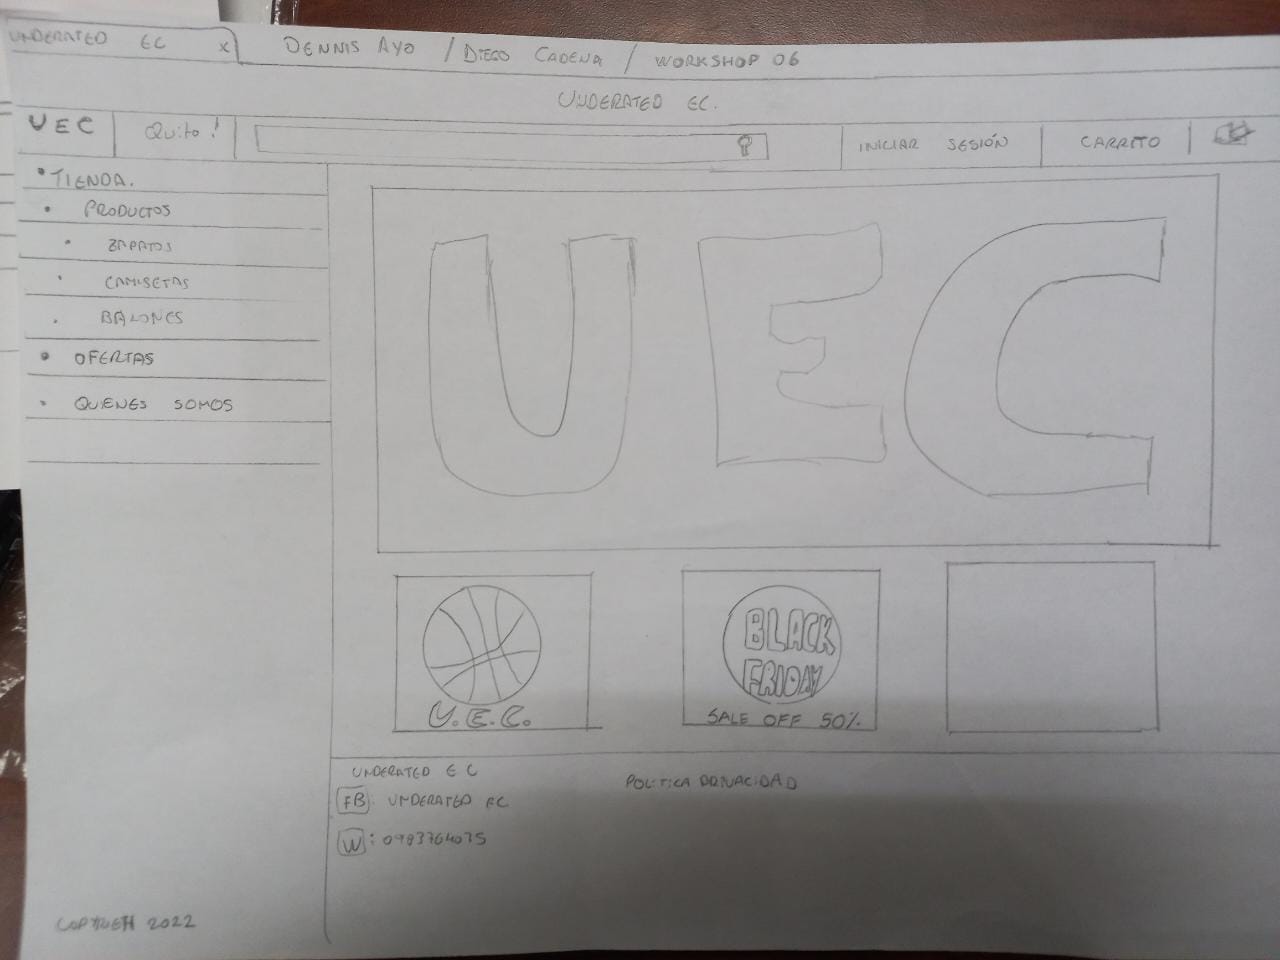 UNDERATED EC x
DENNIS AYO / DIEGO CADENA / WORKSHOP 06
UNDERATED EC.
UEC
Quito!
INICIAR SESIÓN
CARRITO
• TIENDA.
• PRODUCTOS
• ZAPATOS
• CAMISETAS
• BALONES
• OFERTAS
• QUIENES SOMOS
UEC
U.E.C.
BLACK
FRIDAY
SALE OFF 50%
UNDERATED EC
FB: UNDERATED EC
W: 0983764075
POLITICA PRIVACIDAD
COPYRIGH 2022